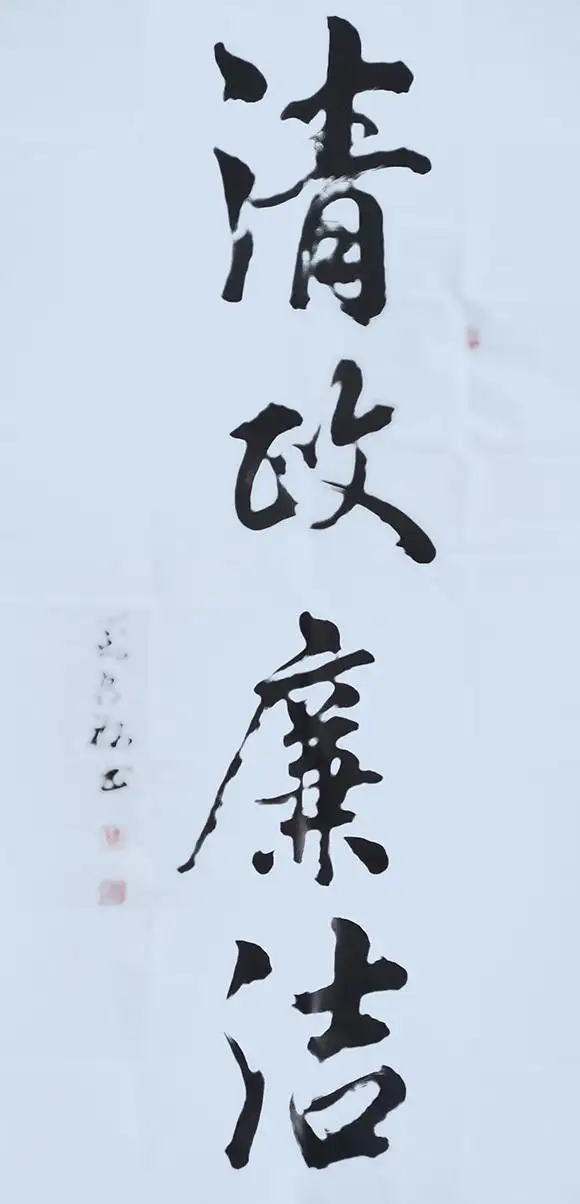 清政廉洁